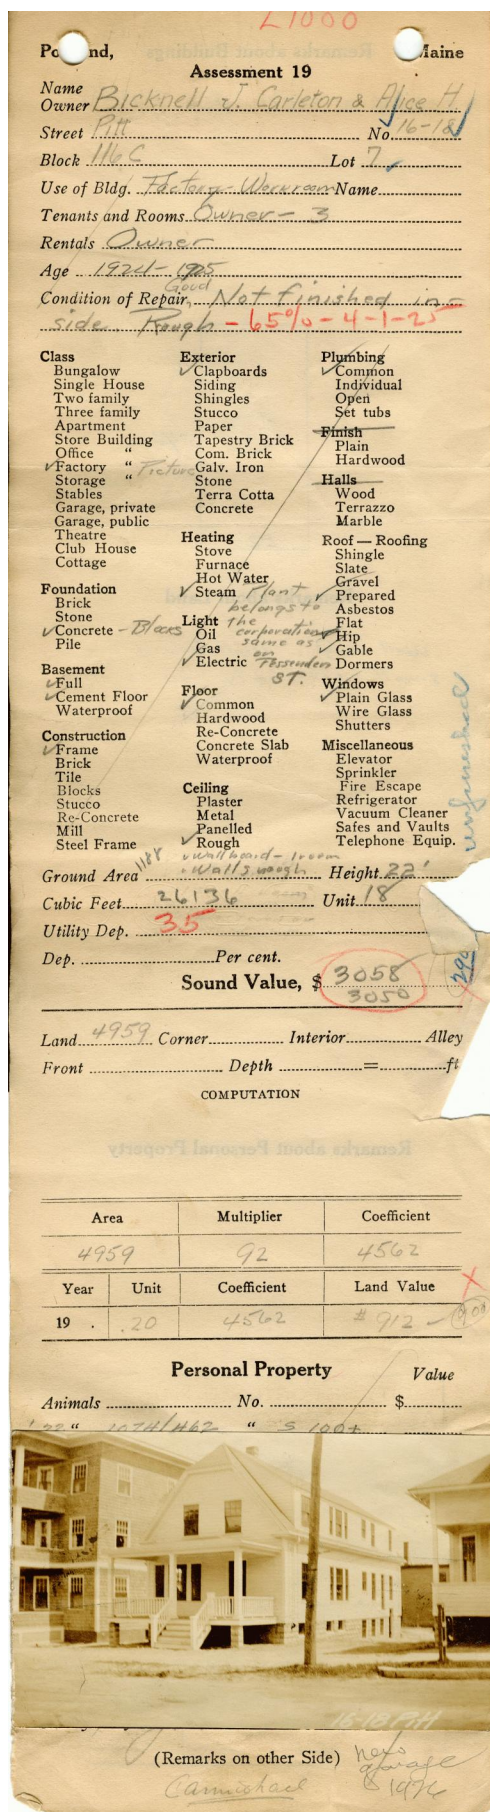 L1000
Po nd, Maine
Assessment 19
Name
Owner Bicknell J. Carleton & Alice H
Street Pitt No. 16-18
Block 116 C Lot 7
Use of Bldg. Factory - Workroom Name
Tenants and Rooms Owner - 3
Rentals Owner
Age 1924-1925
Good
Condition of Repair Not finished in-
side Rough - 65% - 4-1-25
Class
Bungalow
Single House
Two family
Three family
Apartment
Store Building
Office "
✓ Factory " Picture
Storage "
Stables
Garage, private
Garage, public
Theatre
Club House
Cottage
Foundation
Brick
Stone
✓ Concrete - Blocks
Pile
Basement
✓ Full
✓ Cement Floor
Waterproof
Construction
✓ Frame
Brick
Tile
Blocks
Stucco
Re-Concrete
Mill
Steel Frame
Exterior
✓ Clapboards
Siding
Shingles
Stucco
Paper
Tapestry Brick
Com. Brick
Galv. Iron
Stone
Terra Cotta
Concrete
Heating
Stove
Furnace
Hot Water
✓ Steam Plant
belongs to
the
corporation
same as
on
Fessenden
ST.
Light
Oil
Gas
✓ Electric
Floor
✓ Common
Hardwood
Re-Concrete
Concrete Slab
Waterproof
Ceiling
Plaster
Metal
Panelled
✓ Rough
✓ Wallboard - 1 room
✓ Walls rough
Plumbing
✓ Common
Individual
Open
Set tubs
Finish
Plain
Hardwood
Halls
Wood
Terrazzo
Marble
Roof — Roofing
Shingle
Slate
Gravel
✓ Prepared
Asbestos
Flat
✓ Hip
✓ Gable
Dormers
Windows
✓ Plain Glass
Wire Glass
Shutters
Miscellaneous
Elevator
Sprinkler
Fire Escape
Refrigerator
Vacuum Cleaner
Safes and Vaults
Telephone Equip.
unfinished
Ground Area 1188 Height 22'
Cubic Feet 26136 Unit 18
Utility Dep. 35
Dep. Per cent.
290
Sound Value, $ 3058
3050
Land 4959 Corner Interior Alley
Front Depth = ft
COMPUTATION
Area Multiplier Coefficient
4959 92 4562
Year Unit Coefficient Land Value
19 . .20 4562 $ 912 - 900
Personal Property Value
Animals No. $
" "
16-18 Pitt
(Remarks on other Side)
new
garage
1926
Carmichael